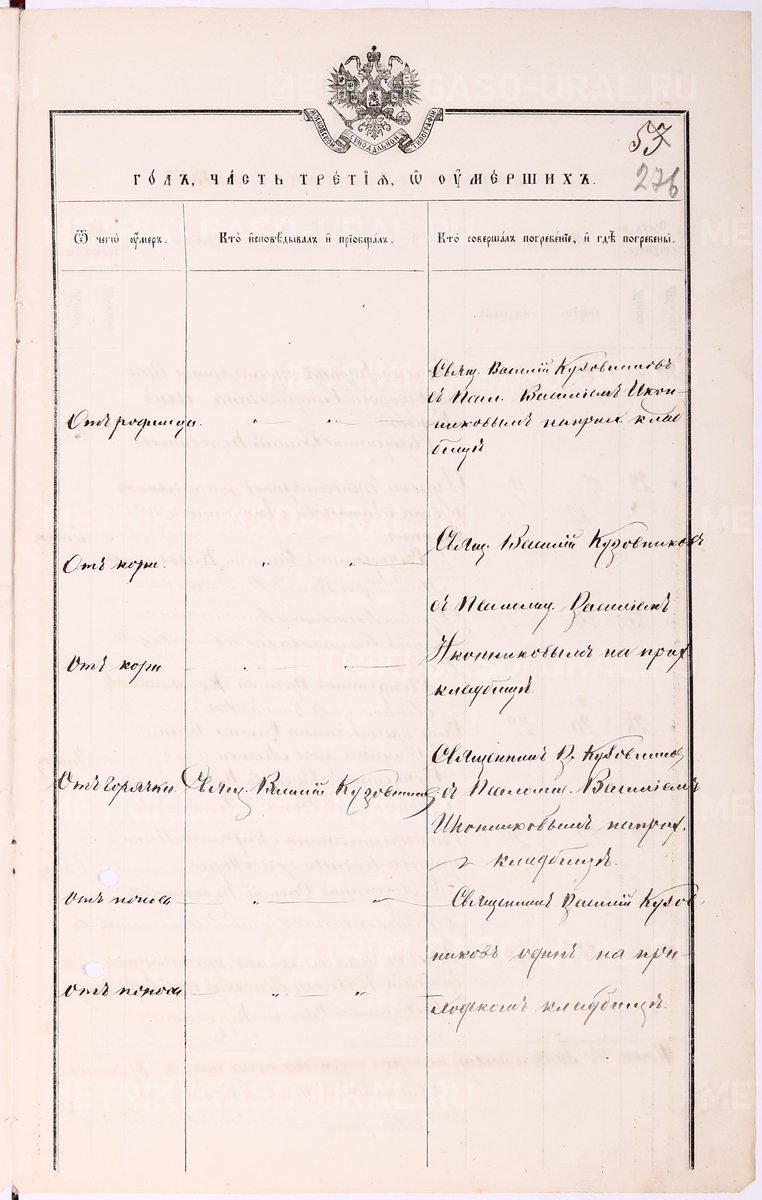 METRIKI.GASO-URAL.RU
МОСКОВСКОЙ СѴНОДАЛЬНОЙ ТИПОГРАФІИ
53
276
ГО́ДЪ, ЧА́СТЬ ТРЕ́ТІѦ, Ѡ ОУ҆МЕ́РШИХЪ.
Ѿ чегѡ̀ оу҆́меръ.
Кто̀ и҆сповѣ́дывалъ и҆ прїѡбща́лъ.
Кто̀ соверша́лъ погребе́нїе, и҆ гдѣ̀ погребены̀.
Отъ родимца.
Свящ. Василій Кузовниковъ
съ Псал. Василіемъ Икон-
никовымъ на прих. клад
бищѣ
Отъ кори.
Свящ. Василій Кузовниковъ
съ Псаломщ. Василіемъ
Отъ кори
Иконниковымъ на прих
кладбищѣ.
Отъ горячки.
Свящ. Василій Кузовников
Священникъ В. Кузовников
съ Псаломщ. Василіемъ
Иконниковымъ на прих.
кладбищѣ.
отъ поноса
Священникъ Василій Кузов
никовъ одинъ на при-
отъ поноса
ходскомъ кладбищѣ.